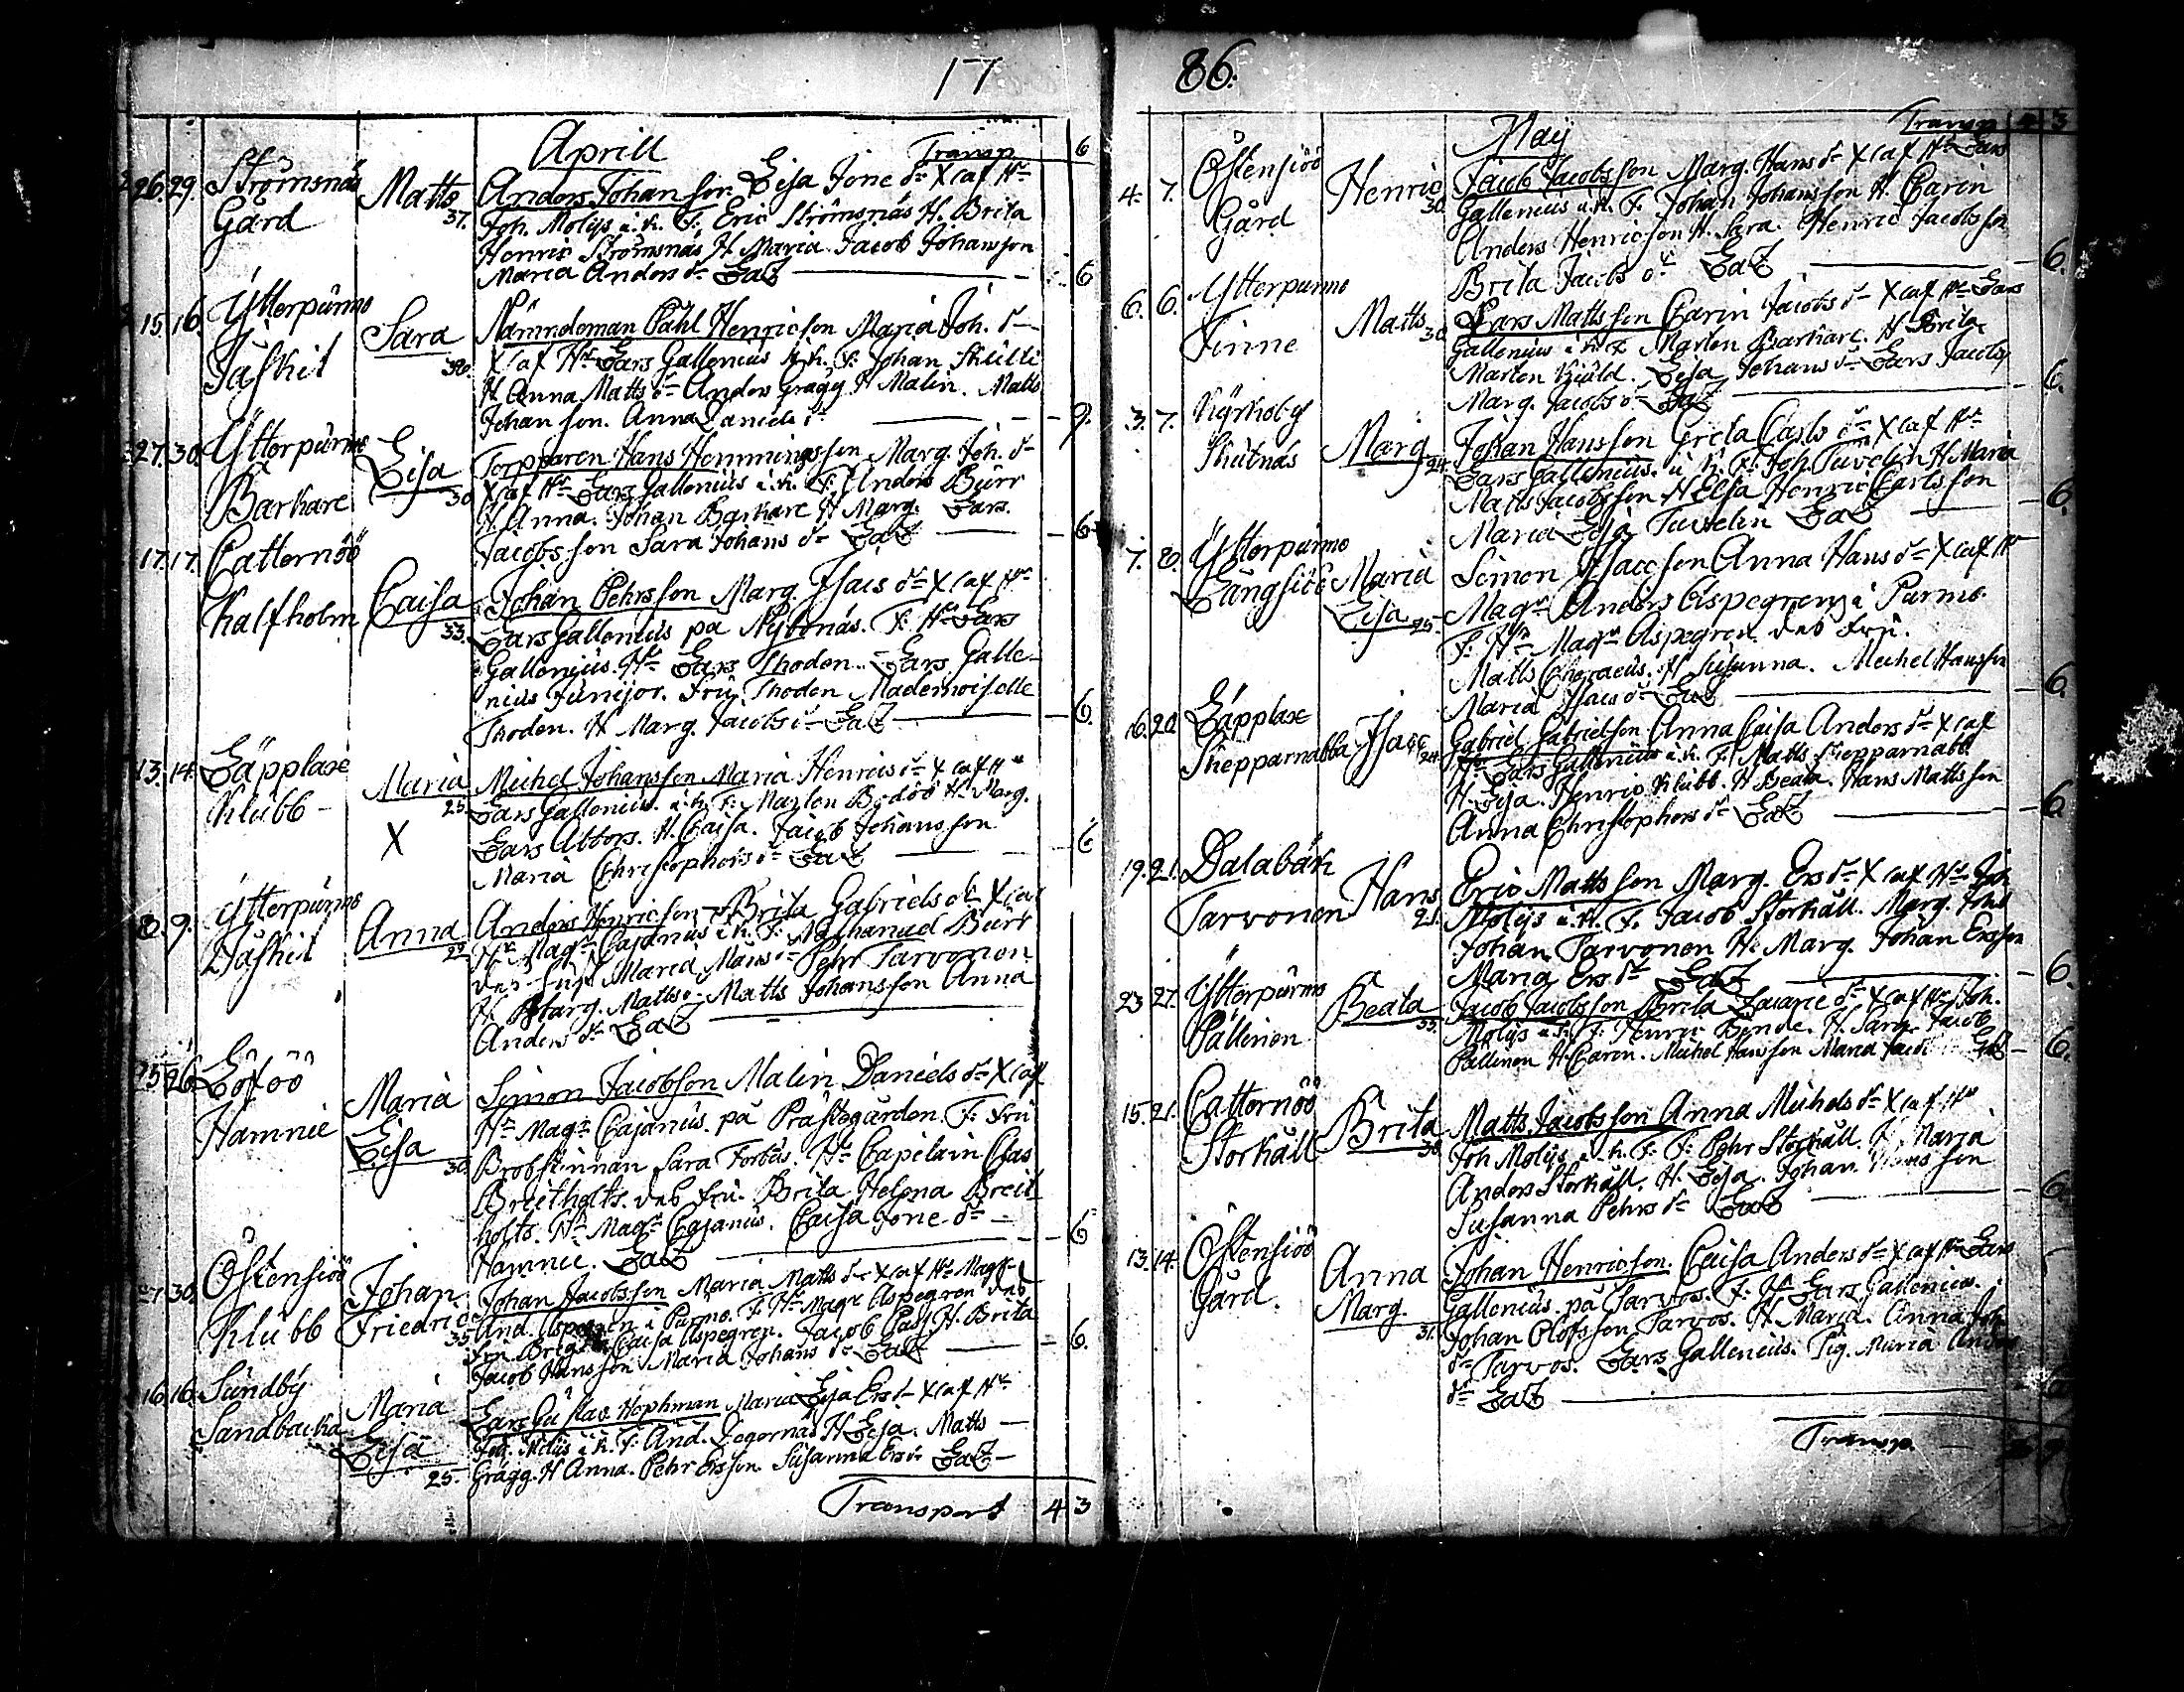 17
Aprill Transp 6
26. 29. Strömsnäs Gård Matts 37. Anders Johansson Lisa Jone dr X af Hr
Joh. Molijs i. K. F: Eric Strömsnäs H. Brita
Henric Strömsnäs H Maria Jacob Johansson
Maria Anders dr LaZ 6
15 16. Ytterpurmo Jäskil Sara 38. Nämndeman Påhl Henricson Maria Joh. dr
X af Hr Lars Gallenius i. K. F. Johan
H Anna Matts dr Anders Grägg H Malin. Matts
Johansson. Anna Daniels dr 9.
27. 30. Ytterpurmo Barkare Lisa 30 Torpparen Hans Hemmingsson Marg. Joh. dr
X af Hr Lars Gallenius i. K. F. Anders Burr
H. Anna. Johan Barkare H Marg. Lars
Jacobsson Sara Johans dr LaZ 6
17. 17. Catternöö Kalfholm Caisa 33. Johan Pehrsson Marg. Isacs dr X af Hr
Lars Gallenius på Nybonäs. F: Hr Lars
Gallenius. Hr Lars Thoden. Lars Galle-
nius Junijor. Fru Thoden Mademoiselle
Thoden. H Marg. Jacobs dr LaZ 6.
13. 14. Läpplax Klubb Maria 25. X Michel Johansson Maria Henrics dr X af Hr
Lars Gallenius. i. K. F: Marten Bodöö H. Marg.
Lars Abbors. H. Caisa. Jacob Johansson
Maria Christophers dr LaZ 6
8. 9. Ytterpurmo Jäskil Anna 29 Anders Henricson Brita Gabriels dr X af
Hr Magr Cajanus i. K. F: Nathanael Burr
des Maria Måns dr Pehr Tarvonen
H. Marg. Matts dr Matts Johansson Anna
Anders dr LaZ
25 26. Löföö Hamnie Maria Lisa 30. Simon Jacobson Malin Daniels dr X af
Hr Magr Cajanus. på Prästegården. F: Fru
Probstinnan Sara Forbus. Hr Capitain Clas
Breitholts. des fru. Brita Helena Breit
holts. Hr Magr Cajanus. Caisa Jone dr
Hamnie. LaZ 6
27. 30. Östensiöö Klubb Johan Friedric 35. Johan Jacobsson Maria Matts dr X af Hr Magr
And. Aspegren i Purmo. F: Hr Magr Aspegren des
Caisa Aspegren. Jacob H. Brita
Jacob Hansson Maria Johans dr LaZ 6.
16. 16. Sundby Sandbacka Maria Lisa 25. Lars Gustav Hophman Maria Lisa Ers dr X af Hr
Joh. Molijs i. K. F: And. Degernäs H Lisa. Matts
Grägg. H Anna. Pehr Ersson Susanna Ers dr LaZ
Transport 4 3
86.
May Transp 4 3
4. 7. Östensiöö Gård Henric 30. Jacob Jacobsson Marg. Hans dr X af Hr Lars
Gallenius i. K. F. Johan Johansson H. Carin
Anders Henricson H. Sara. Henric Jacobsson
Brita Jacobs dr LaZ 6.
6. 6. Ytterpurmo Finne Matts 30 Lars Mattsson Carin Jacobs dr X af Hr Lars
Gallenius i K F Marten Barkare. H Brita
Marten Lisa Johans dr Lars Jacobs
Marg. Jacobs dr LaZ 6.
3. 7. Kyrkoby Skutnäs Marg. 24. Johan Hansson Greta Carls dr X af Hr
Lars Gallenius. i K. F: Joh. Tuvelin H Maria
Matts Jacobsson H Elsa Henric Carlsson
Maria Lisa Tuvelin LaZ 6.
7. 8. Ytterpurmo Långsiöö Maria Lisa 25. Simon Isacson Anna Hans dr X af Hr
Magr Anders Aspegren i Purmo.
F: Hr Magr Aspegren des Fru.
Matts Cheraeus. H Susanna. Michel Hansson
Maria Isacs dr LaZ 6.
16. 20. Läpplax Skepparnabba Isaac 24. Gabriel Gabrielson Anna Caisa Anders dr X af
Hr Lars Gallenius i. K. F. Matts Skepparnabb
H. Lisa. Henric Klubb. H Beata. Hans Mattsson
Anna Christophers dr LaZ 6.
19. 21. Dalabäck Tarvonen Hans 25. Eric Mattsson Marg. Ers dr X af Hr Joh
Molijs i. K. F. Jacob Storkåll. Marg. Johs
Johan Tarvonen H. Marg. Johan Ersson
Marg Ers dr LaZ 6.
23 27. Ytterpurmo Pällinen Beata 33. Jacob Jacobsson Brita Zacarie dr X af Hr Joh.
Molijs i. K. F: Henric Bonde. H. Sara. Jacob
Pällinen H. Caren. Michel Hansson Maria Jacob LaZ 6.
15. 21. Catternöö Storkåll Brita 30 Matts Jacobsson Anna Michels dr X af Hr
Joh Molijs i. K. F: F: Pehr Storkåll. H Maria
Anders Storkåll. H. Lisa. Johan Hansson
Susanna Pehrs dr LaZ 6.
13. 14. Östensiöö Gård. Anna Marg. 31. Johan Henricson. Caisa Anders dr X af Hr Lars
Gallenius. på Tarvos. F: Hr Lars Gallenius.
Johan Olofsson Tarvos. H. Maria. Anna Joh
dr Tarvos. Lars Gallenius. Pig. Maria Anders
dr LaZ
Transp.